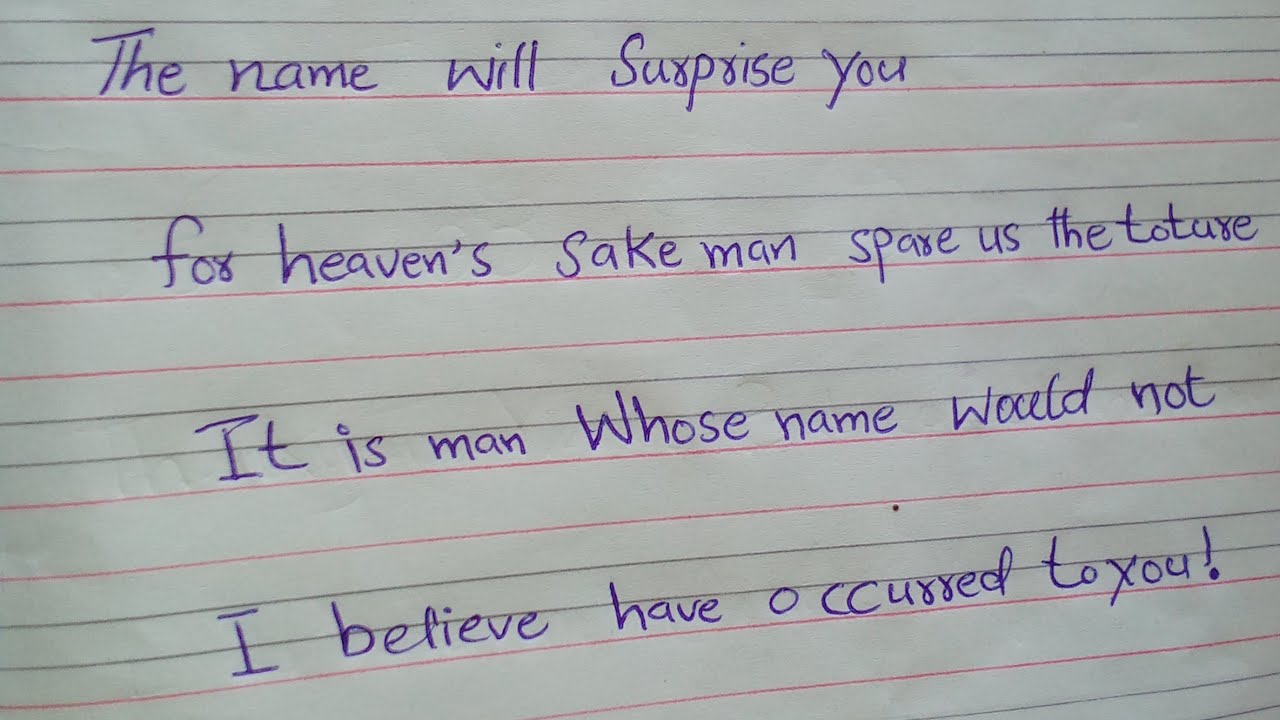 The name will Surprise you
for heaven's sake man spare us the toture
It is man Whose name would not
I believe have occurred to you!